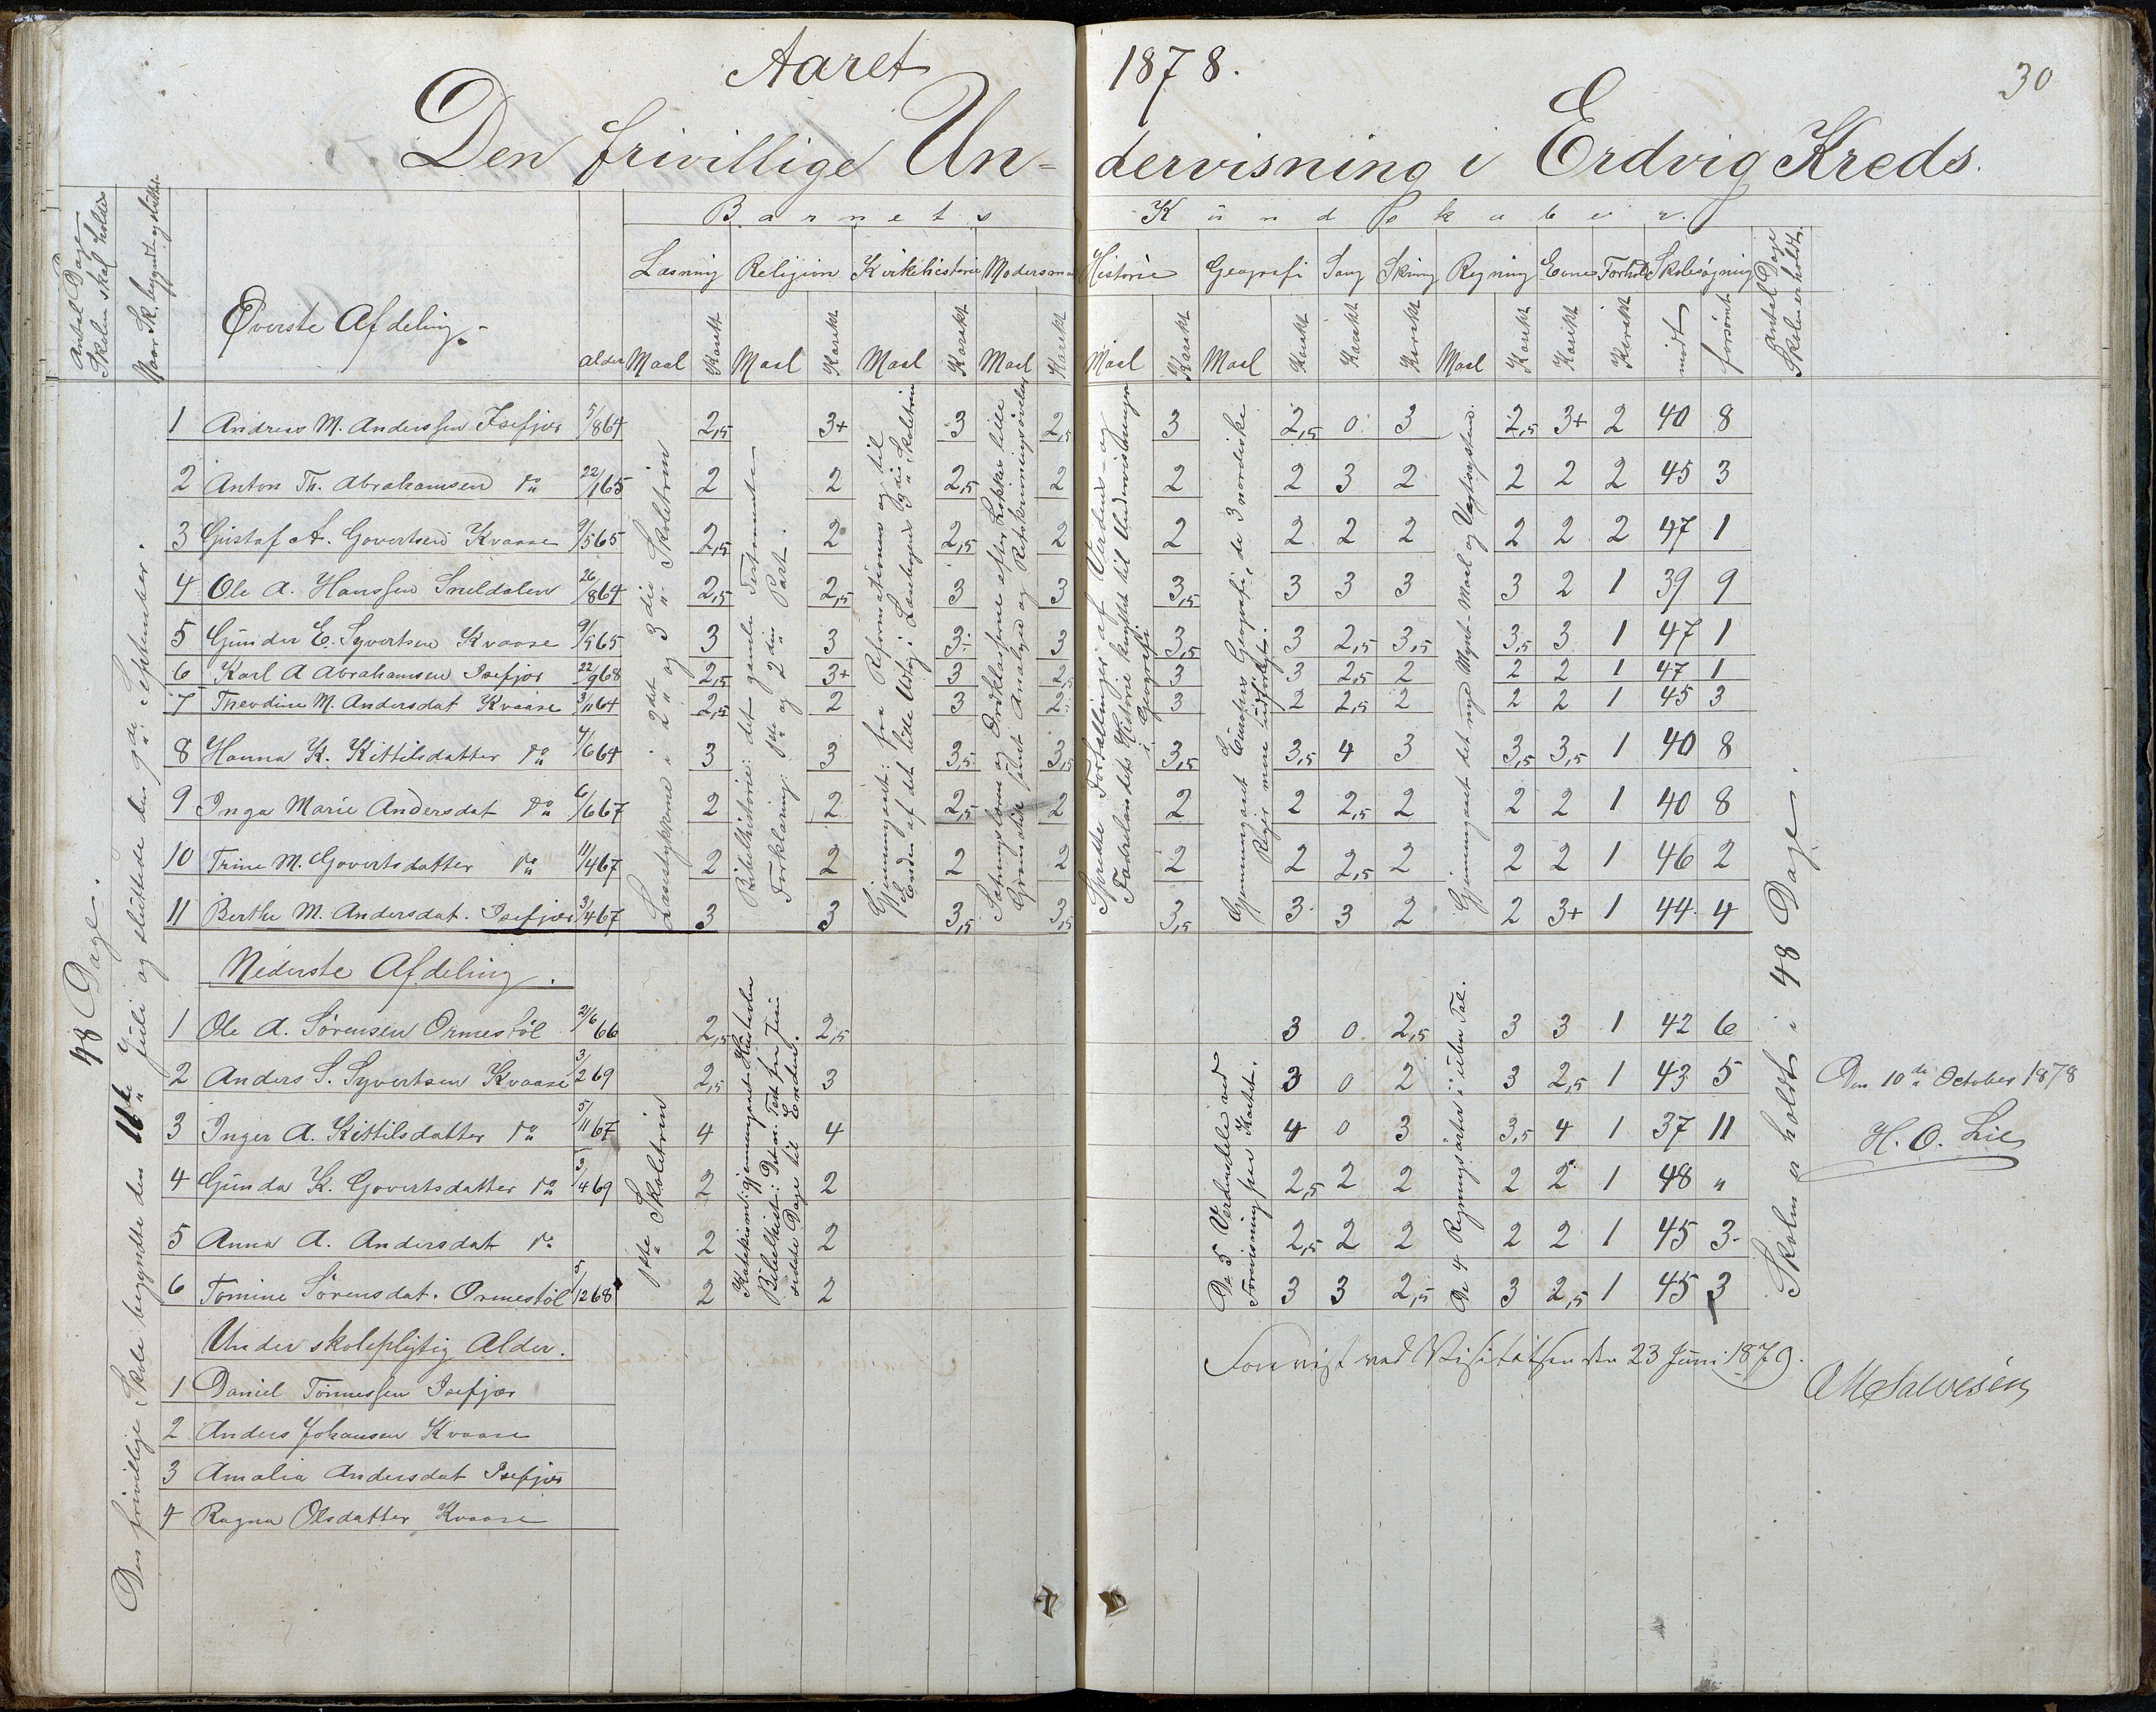 Aaret 1878.
30
Den frivillige Un-dervisning i Erdvig Kreds.
Antal Dage Skolen skal holdes
Naar Sk. begyndt og sluttet
Øverste Afdeling.
Alder
Barnets Kundskaber.
Læsning Religion Kirkehistorie Modersmaal Historie Geografi Sang Skrivning Regning Evner Forhold Skolesøgning
Maal Karakt Maal Karakt Maal Karakt Maal Karakt Maal Karakt Maal Karakt Karakt Karakt Maal Karakt Karakt Karakt mødt forsømt
Antal Dage Skolen er holdt
48 Dage.
Den frivillige Skole begyndte den 11te Juli og sluttede den 9de September.
1 Andreas M. Anderssen Isefjær 5/8 64 2,5 3+ 3 2,5 3 2,5 0 3 2,5 3+ 2 40 8
2 Anton Th. Abrahamsen do 22/1 65 2 2 2,5 2 2 2 3 2 2 2 2 45 3
3 Gustaf A. Govertsen Kvaase 9/5 65 2,5 2 2,5 2 2 2 2 2 2 2 2 47 1
4 Ole A. Hanssen Sneldalen 26/8 64 2,5 2,5 3 3 3,5 3 3 3 3 2 1 39 9
5 Gunder E. Syvertsen Kvaase 9/5 65 3 3 3 3 3,5 3 2,5 3,5 3,5 3 1 47 1
6 Karl A Abrahamsen Isefjær 22/9 68 2,5 3+ 3 2,5 3 3 2,5 2 2 2 1 47 1
7 Thevdine M. Andersdat Kvaase 3/11 64 2,5 2 3 2 3 2 2,5 2 2 2 1 45 3
8 Hanna K. Kittilsdatter do 7/6 64 3 3 3,5 3,5 3,5 3,5 4 3 3,5 3,5 1 40 8
9 Inga Marie Andersdat do 6/6 67 2 2 2,5 2 2 2 2,5 2 2 2 1 40 8
10 Trine M. Govertsdatter do 11/4 67 2 2 2 2 2 2 2,5 2 2 2 1 46 2
11 Berthe M. Andersdat. Isefjær 3/4 67 3 3 3,5 3,5 3,5 3 3 2 2 3+ 1 44 4
Læsestykkerne i 2det og 3die Skoletrin
Bibelhistorie: det gamle Testamente
Forklaring 1ste og 2den Part.
Gjennemgaaet: fra Reformationen og til
Enden af det lille Udtog i Læsebogens 3die Skoletrin
Sætningslæren og Ordklasserne efter Løkkes lille
Gramatik samt Analyse og Retskrivningsøvelser
Spredte Fortællinger af Verdens- og
Fædrelandets Historie knyttet til Undervisningen
i Geografi
Gjennemgaaet Europas Geografi, de 3 nordiske
Riger mere udførligt.
Gjennemgaaet det nye Mynt-Maal og Vægtsystem.
Nederste Afdeling.
1 Ole A. Sørensen Ormestöl 21/6 66 2,5 2,5 3 0 2,5 3 3 1 42 6
2 Anders S. Syvertsen Kvaase 3/2 69 2,5 3 3 0 2 3 2,5 1 43 5
3 Inger A. Kittilsdatter do 5/11 67 4 4 4 0 3 3,5 4 1 37 11
4 Gunda K. Govertsdatter do 3/4 69 2 2 2,5 2 2 2 2 1 48 "
5 Anna A. Andersdat do 2 2 2,5 2 2 2 2 1 45 3
6 Tomine Sørensdat. Ormestöl /12 68 2 2 3 3 2,5 3 2,5 1 45 3
1ste Skoletrin
Bibelhist: Det n. Test fra Jesu
sidste Dage til Enden.
De 5 Verdensdele ved
Forevisning paa Kartet.
De 4 Regningsarter i ueben Tal.
Skolen er holdt i 48 Dage.
Den 10de October 1878
H. O. Lie
Under skolepligtig Alder.
1 Daniel Tønnessen Isefjær
2 Anders Johansen Kvaase
3 Amalia Andersdat Isefjær
4 Ragna Olsdatter Kvaase
Forevist ved Visitatsen den 23 Juni 1879.